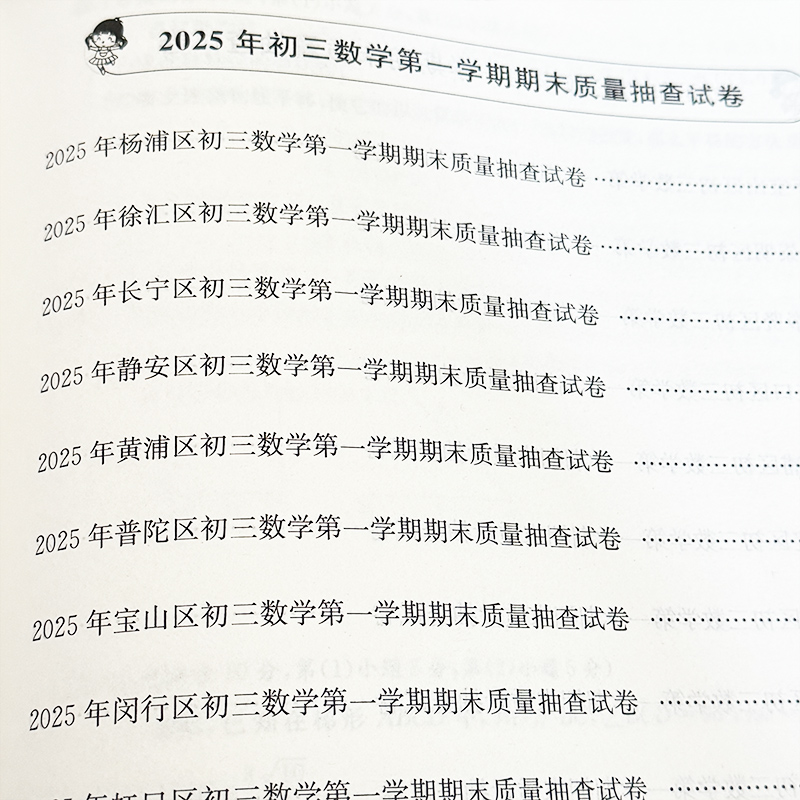 2025年初三数学第一学期期末质量抽查试卷
2025年杨浦区初三数学第一学期期末质量抽查试卷
2025年徐汇区初三数学第一学期期末质量抽查试卷
2025年长宁区初三数学第一学期期末质量抽查试卷
2025年静安区初三数学第一学期期末质量抽查试卷
2025年黄浦区初三数学第一学期期末质量抽查试卷
2025年普陀区初三数学第一学期期末质量抽查试卷
2025年宝山区初三数学第一学期期末质量抽查试卷
2025年闵行区初三数学第一学期期末质量抽查试卷
2025年虹口区初三数学第一学期期末质量抽查试卷